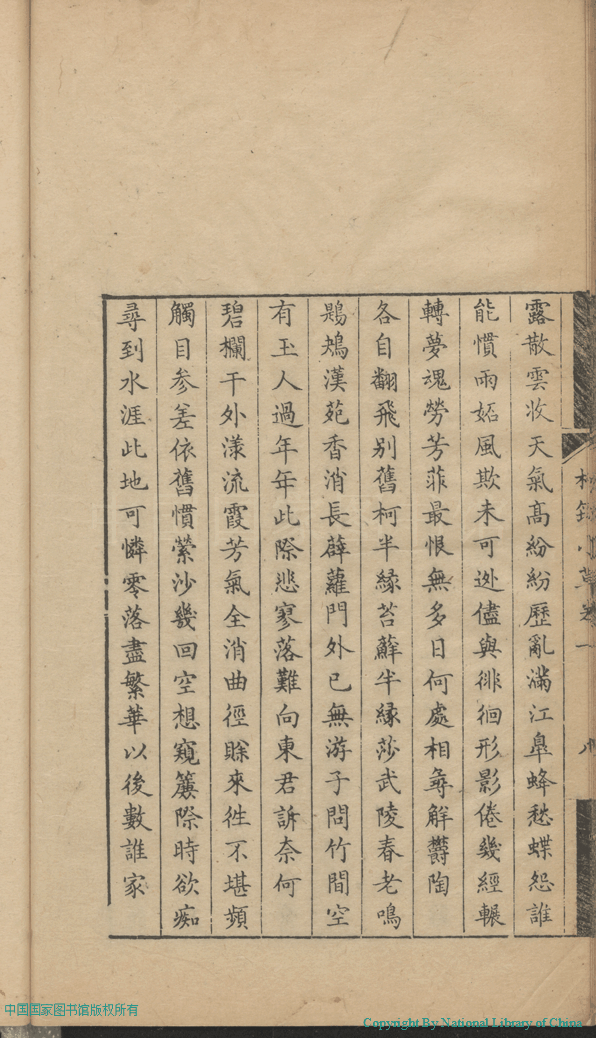 露散雲收天氣高紛紛歷亂滿江臯蜂愁蝶怨誰
能慣雨妬風欺未可迯儘與徘徊形影倦幾經輾
轉夢魂勞芳菲最恨無多日何處相尋解鬱陶
各自翻飛别舊柯半縁苔蘚半縁莎武陵春老鳴
鶗鴂漢苑香消長薜蘿門外已無游子問竹間空
有玉人過年年此際悲寥落難向東君訴奈何
碧欄干外漾流霞芳氣全消曲徑賖來徃不堪頻
觸目参差依舊慣縈沙幾回空想窺簾際時欲痴
尋到水涯此地可憐零落盡繁華以後數誰家
中国国家图书馆版权所有
Copyright By National Library of China